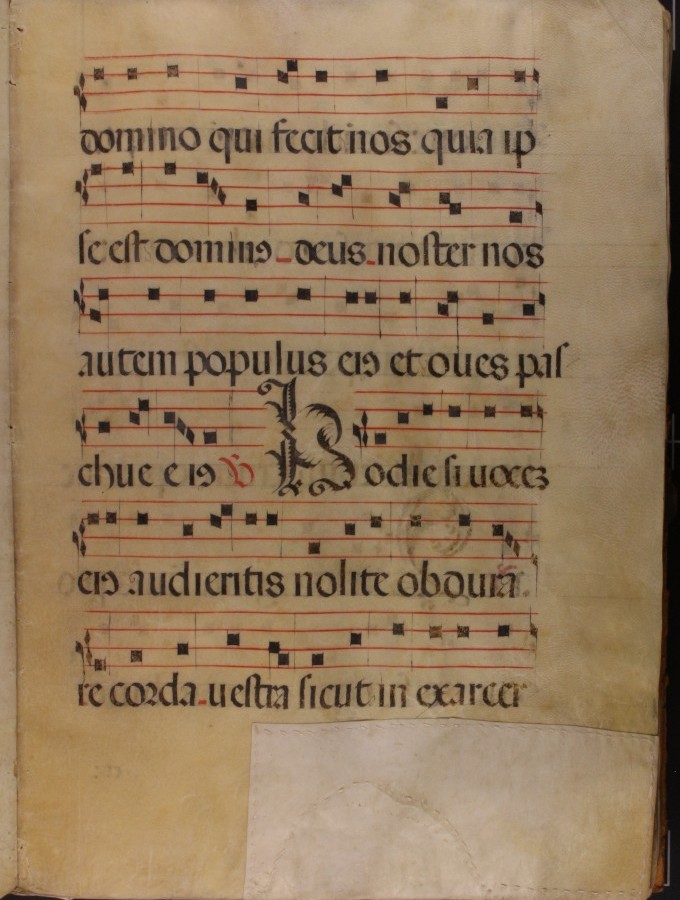 domino qui fecit nos quia ip
se est dominꝰ deus noster nos
autem populus eiꝰ et oues pas
chue eiꝰ ℣ Hodie si uocez
eiꝰ audieritis nolite obdura
re corda uestra sicut in exarcer